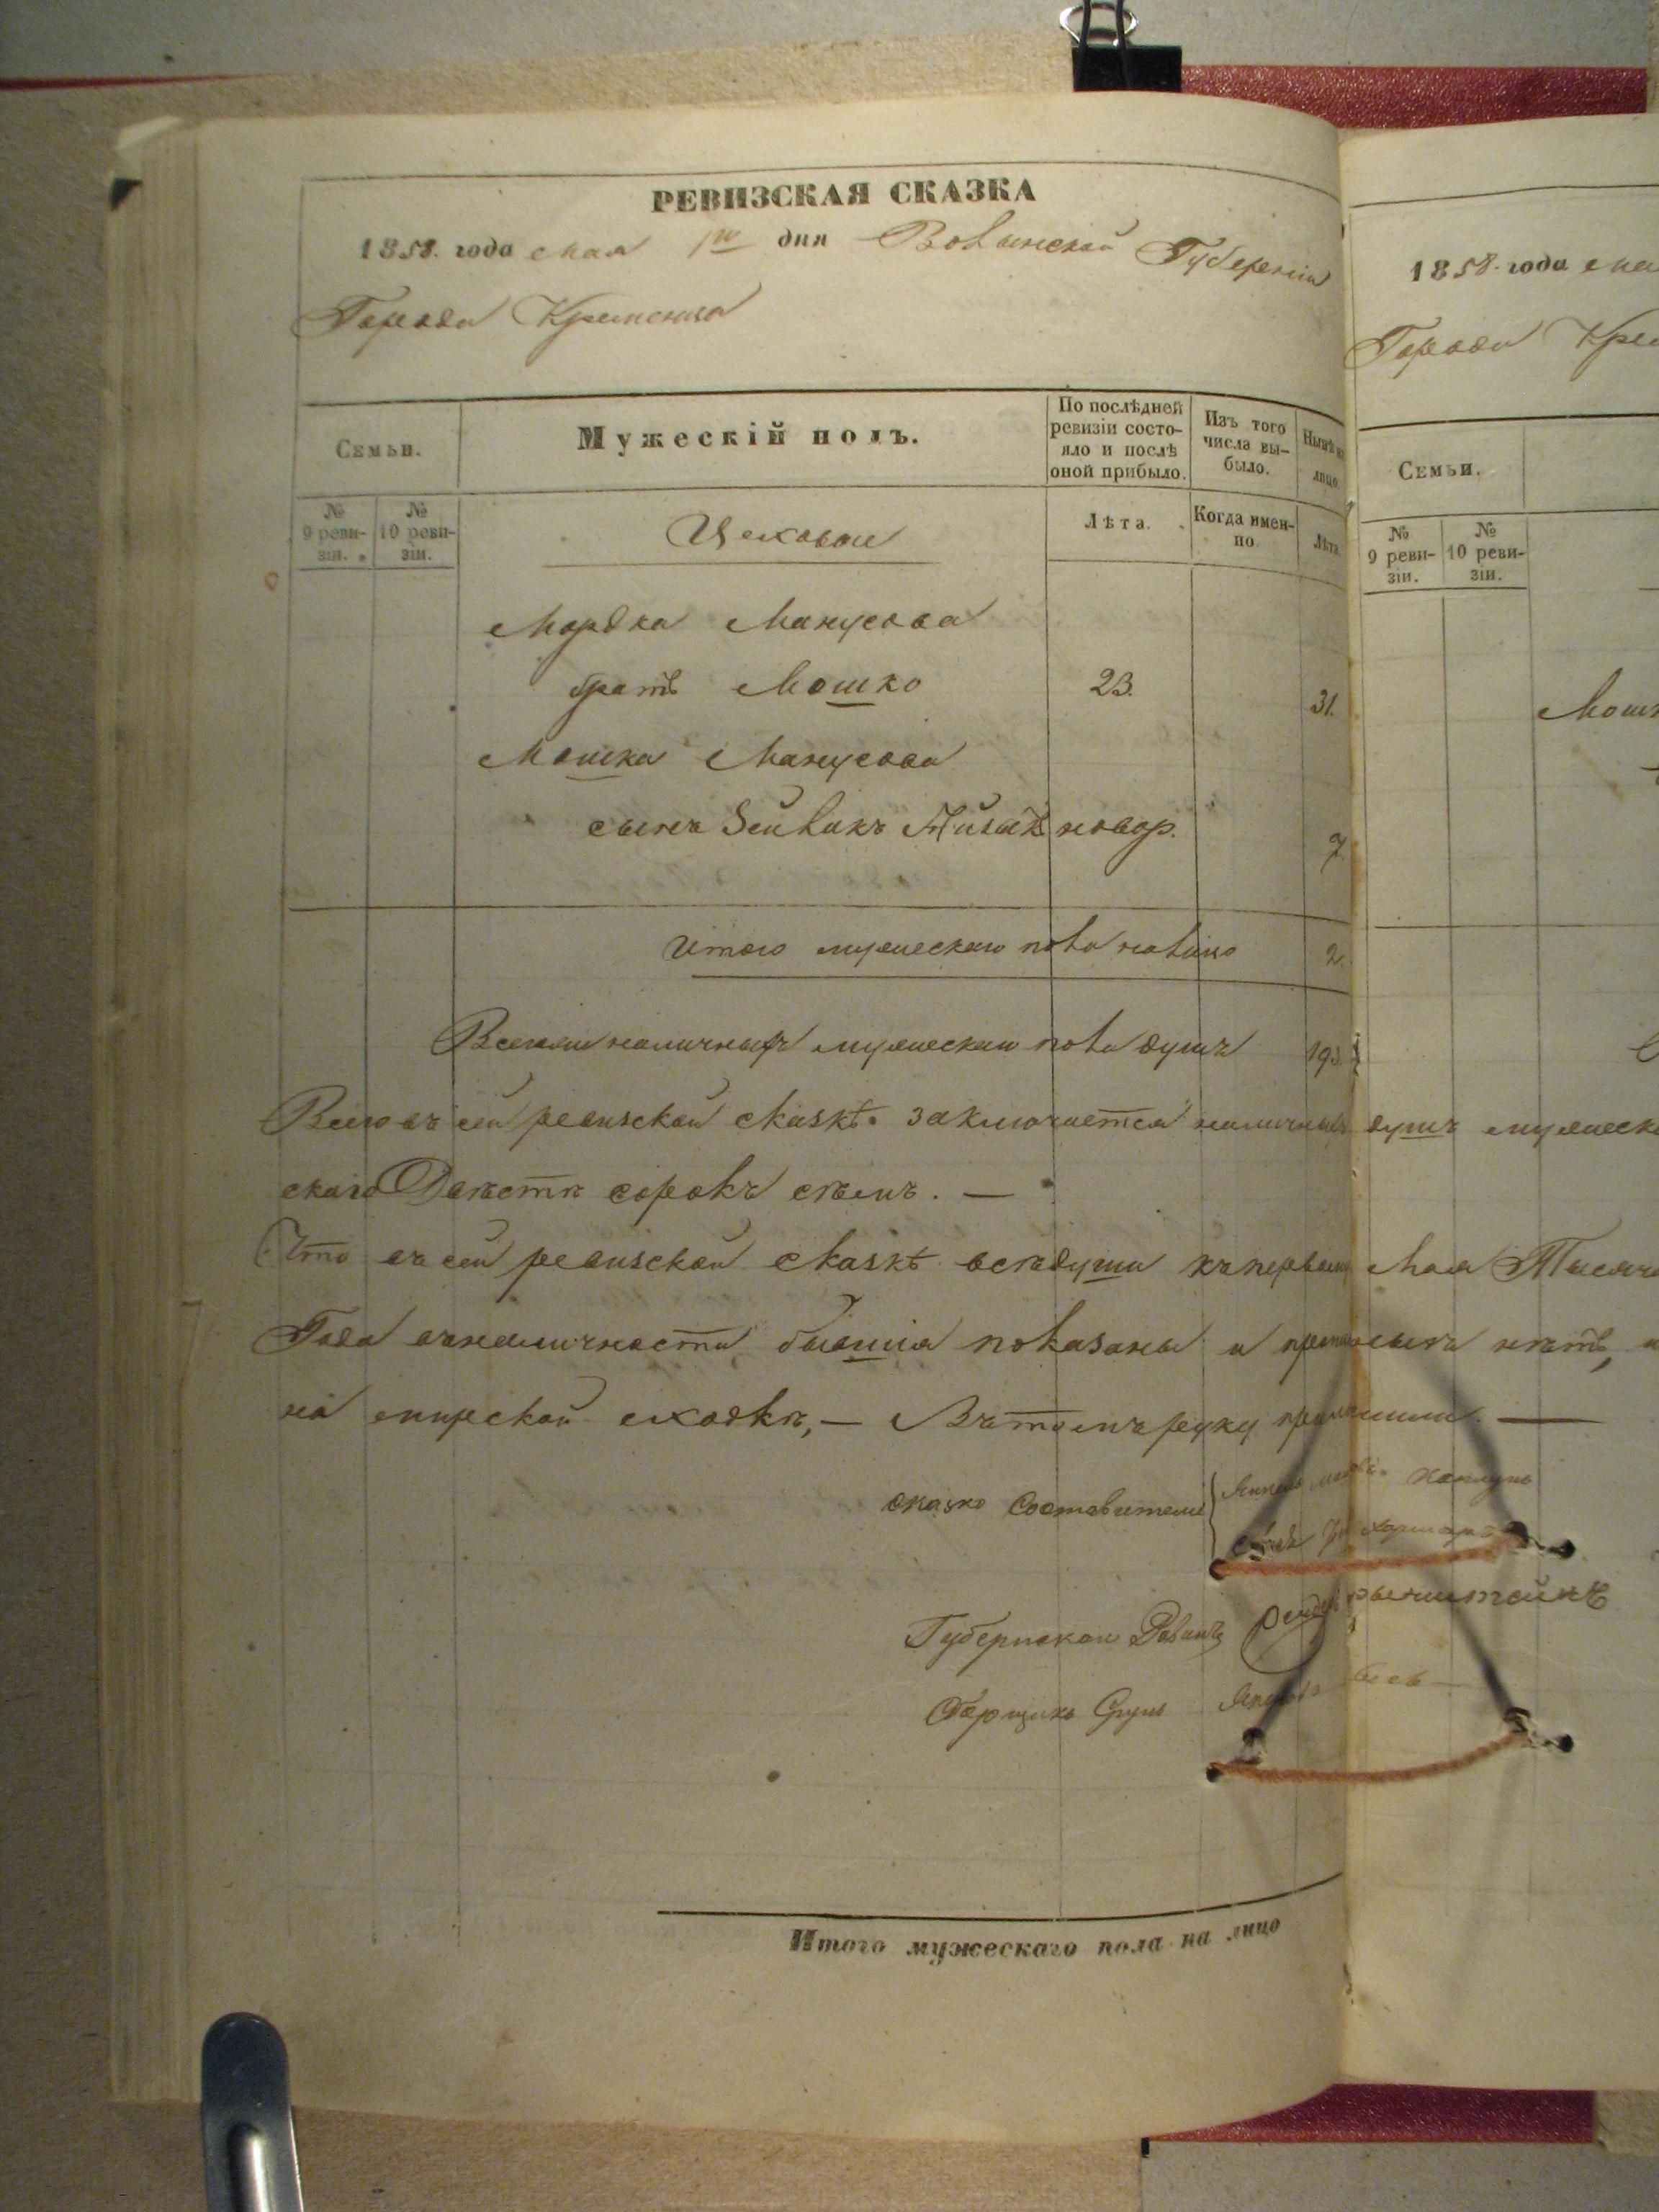 РЕВИЗСКАЯ СКАЗКА
1858. года мая 1го дня Волынской Губерніи
Города Кременца
Семьи.
Мужескій полъ.
По послѣдней ревизіи состо-
яло и послѣ
оной прибыло.
Изъ того
числа вы-
было.
Нынѣ на
лицо.
№
9 реви-
зіи.
№
10 реви-
зіи.
Цеховые
Лѣта.
Когда имен-
но
Лѣта
Мордка Манусова
братъ Мошко 23. 31.
Мошка Манусова
сынъ Зейликъ новор. 7.
Итого мужескаго пола налицо 2.
Всего наличныхъ мужеска пола душъ 193.
Всего въ сей ревизской сказкѣ заключается наличныхъ душъ мужеск
скаго Двѣсти сорокъ семь. —
Что въ сей ревизской сказкѣ всѣ души къ первому Мая Тысяч
Года въ наличности бывшія показаны и прописныхъ нѣтъ,
на мирской сходкѣ, — Въ томъ руку приложили. —
Сказко Составители
Губернскои Равинъ
Зборщикъ
Итого мужескаго пола на лицо
1858. года мая
Города Кре
Семьи.
№
9 реви-
зіи.
№
10 реви-
зіи.
Мошк